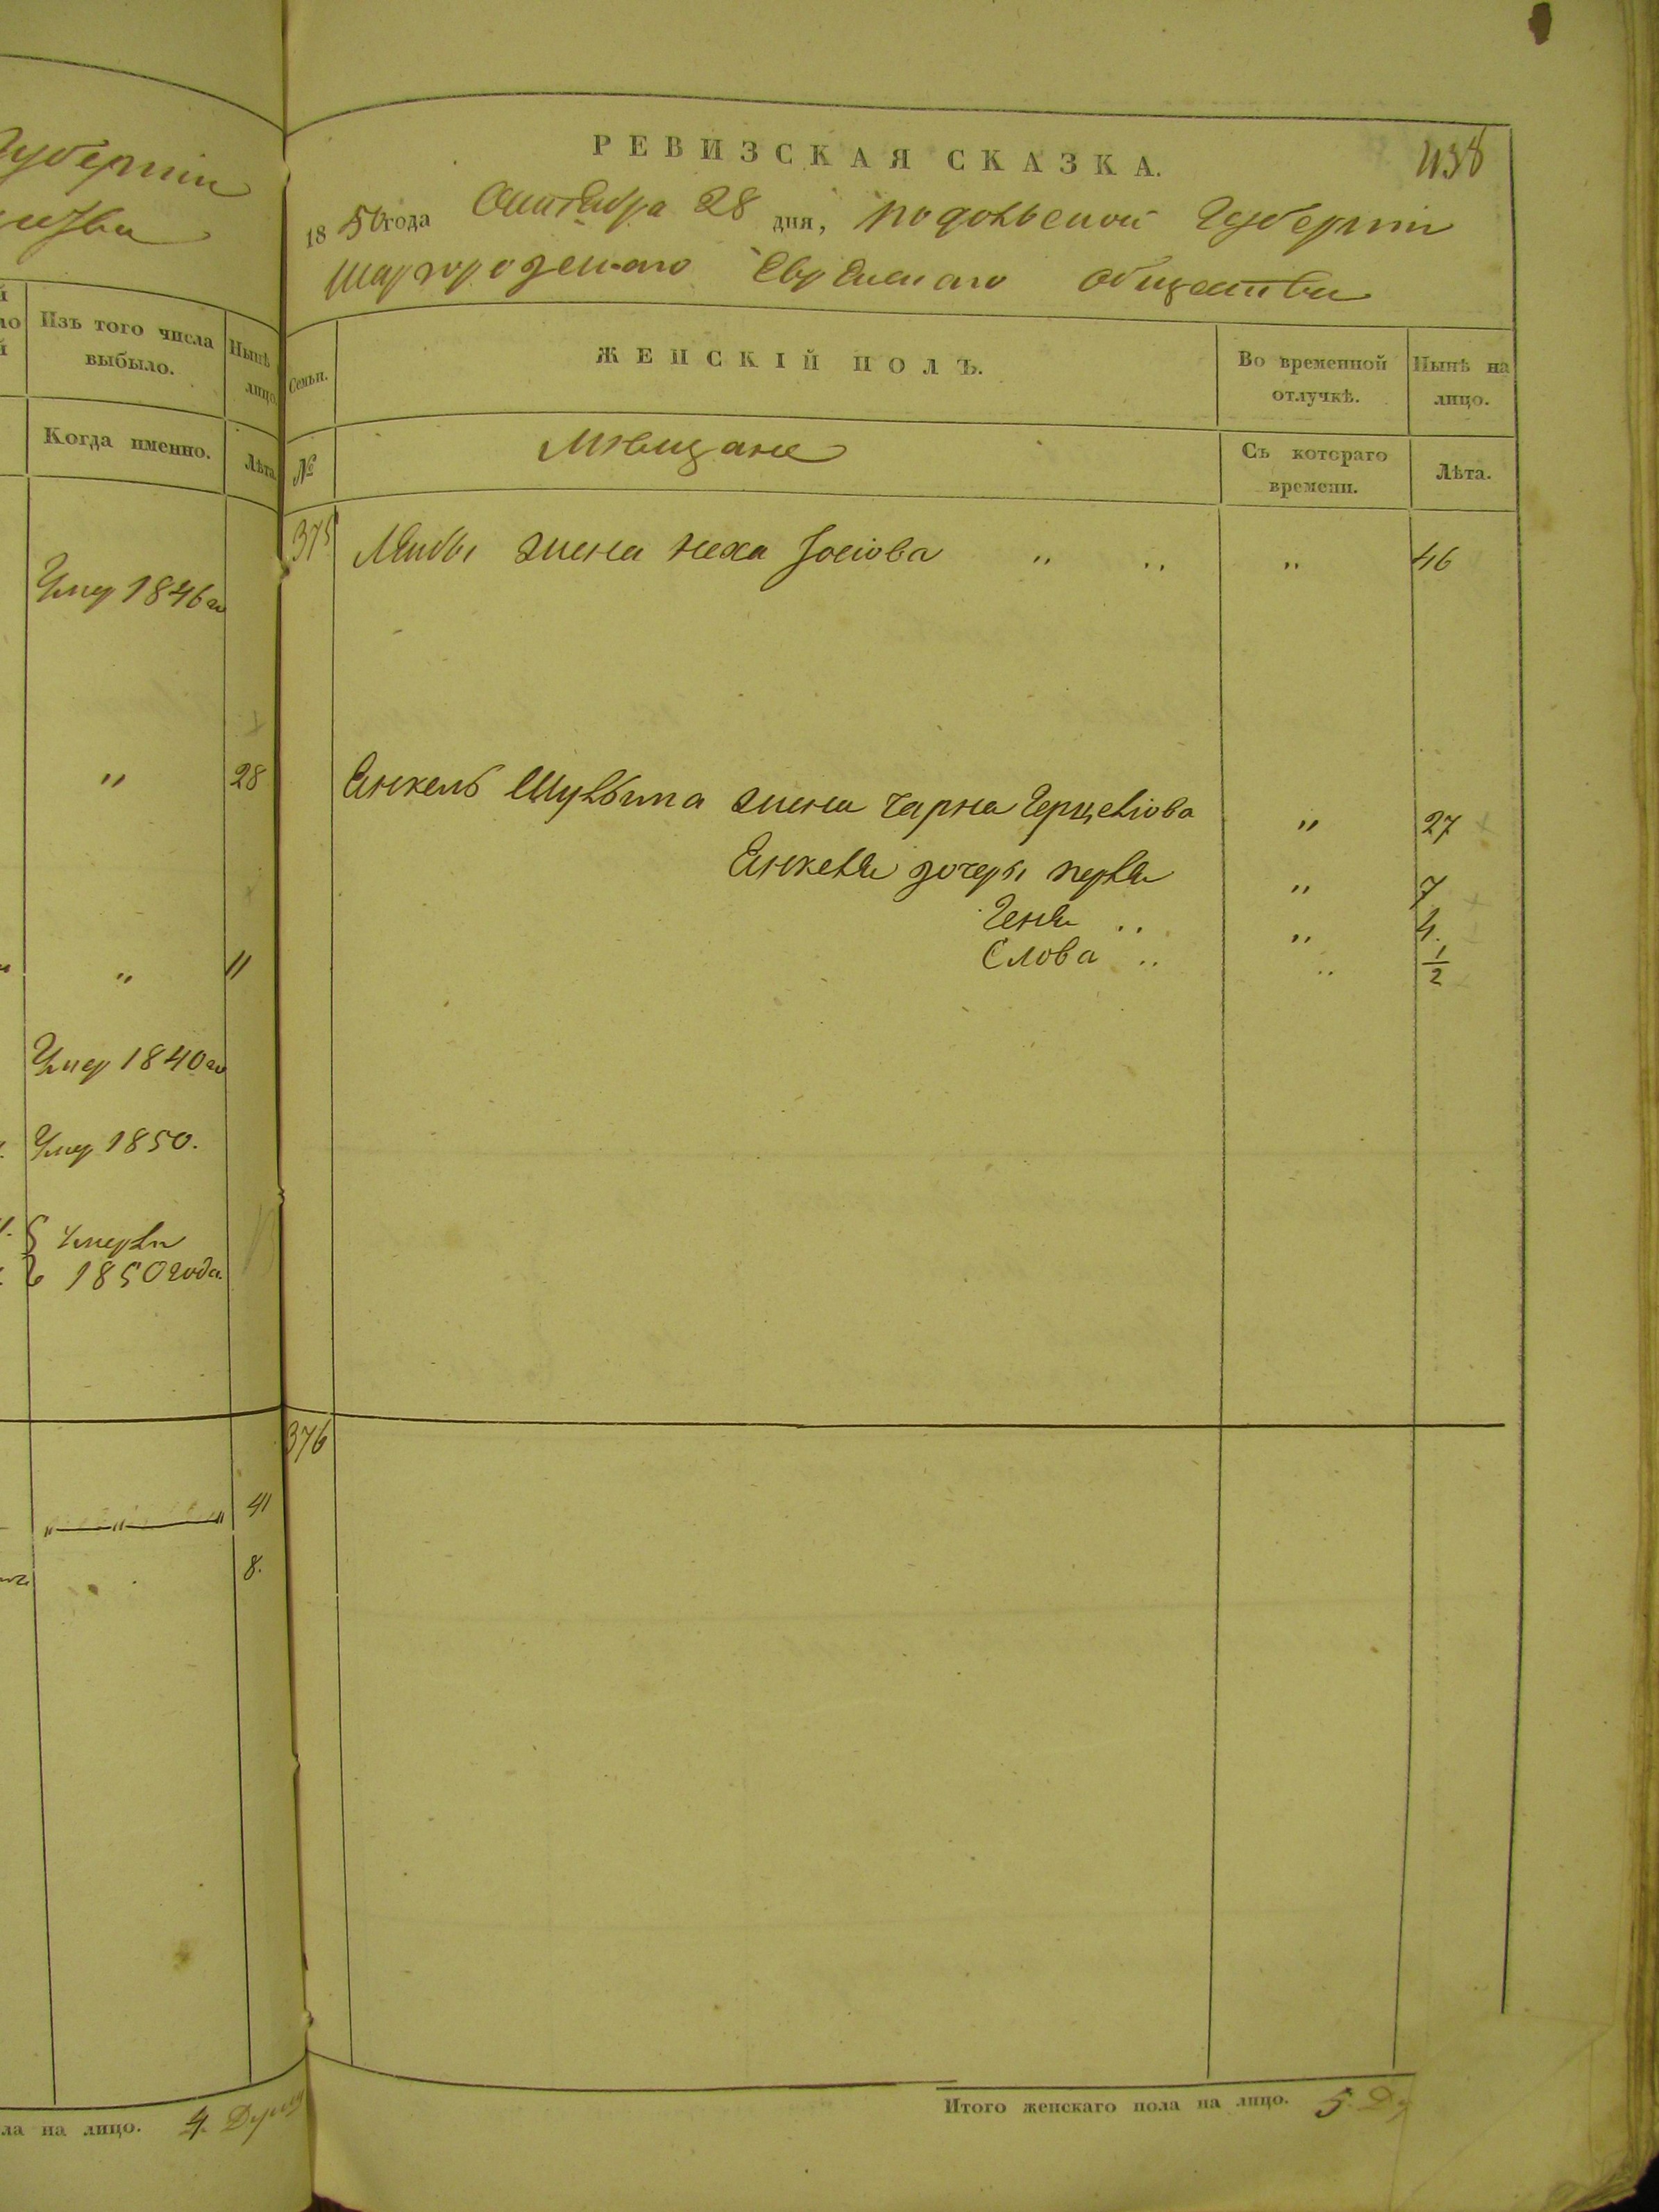 Губерніи
Изъ того числа
выбыло.
Нынѣ
лицо.
Когда именно.
Лѣта.
Умер 1846го
" 28
" 11
Умер 1840го
Умер 1850.
Умерли
1850 года.
"—"—" 41
8.
ла на лицо. 4. Душ
РЕВИЗСКАЯ СКАЗКА.
438
1850 года Октября 28 дня, Подольской Губерніи
Шаргородскаго Еврейскаго Общества
Семьи.
ЖЕНСКІЙ ПОЛЪ.
Во временной
отлучкѣ.
Нынѣ на
лицо.
№
Мѣщане
Съ котораго
времени.
Лѣта.
375 Лейбы жена Неха Іосіова " " " 46
Янкель Шульима жена Чарна Герцелiова " 27
Янкеля дочери Перля " 7
Геня " " 4.
Слова " " 1/2
376
Итого женскаго пола на лицо. 5. Ду